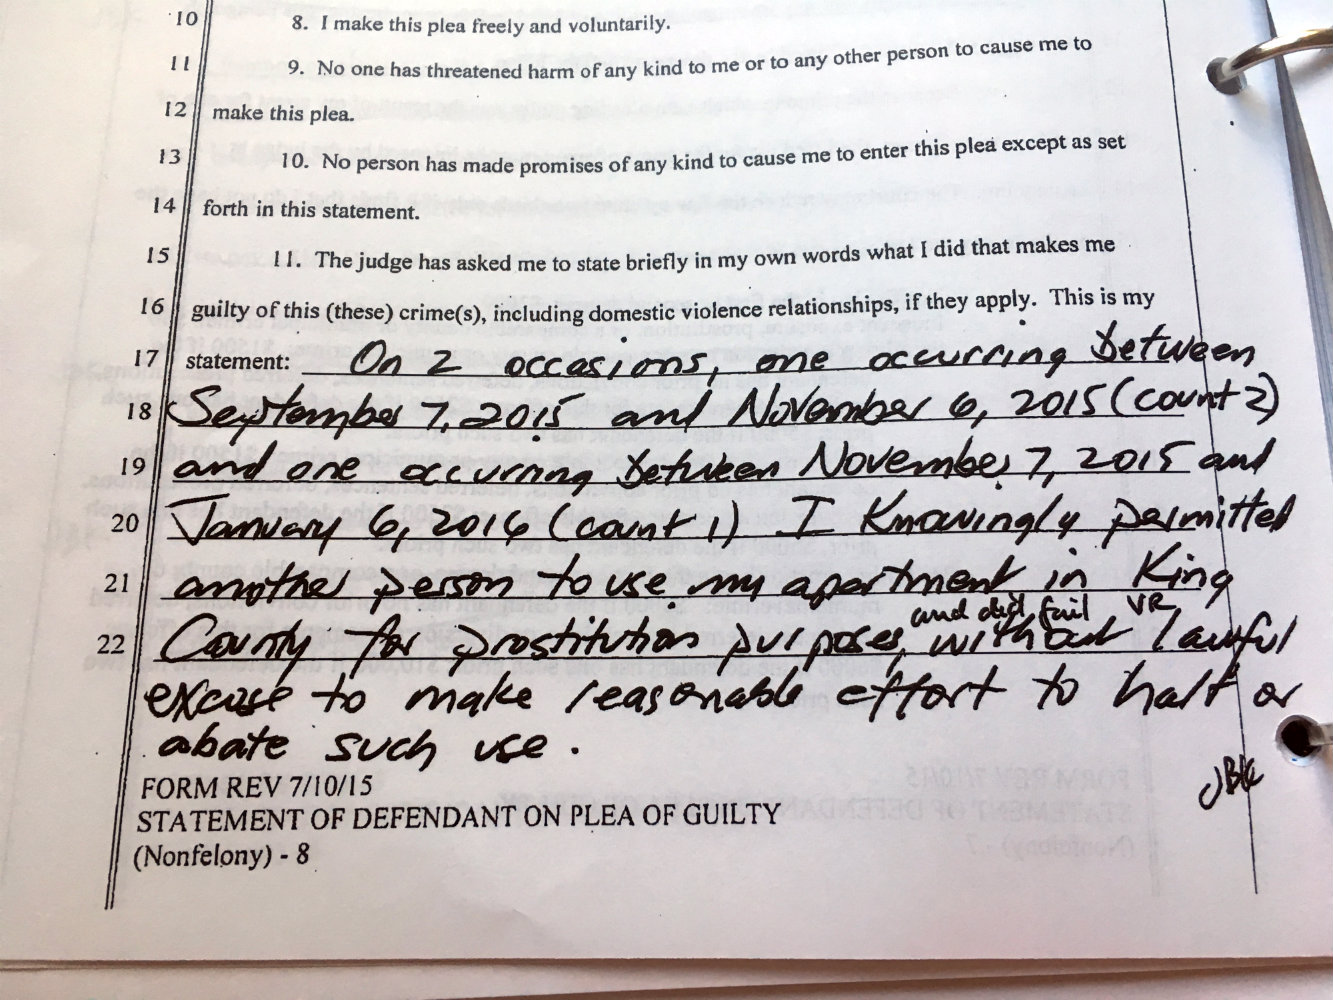 10 8. I make this plea freely and voluntarily.
11 9. No one has threatened harm of any kind to me or to any other person to cause me to
12 make this plea.
13 10. No person has made promises of any kind to cause me to enter this plea except as set
14 forth in this statement.
15 11. The judge has asked me to state briefly in my own words what I did that makes me
16 guilty of this (these) crime(s), including domestic violence relationships, if they apply. This is my
17 statement: On 2 occasions, one occurring between
18 September 7, 2015 and November 6, 2015 (count 2)
19 and one occurring between November 7, 2015 and
20 January 6, 2016 (count 1) I knowingly permitted
21 another person to use my apartment in King
and did fail VR
22 County for prostitution purposes, without lawful
excuse to make reasonable effort to halt or
abate such use.
JBK
FORM REV 7/10/15
STATEMENT OF DEFENDANT ON PLEA OF GUILTY
(Nonfelony) - 8